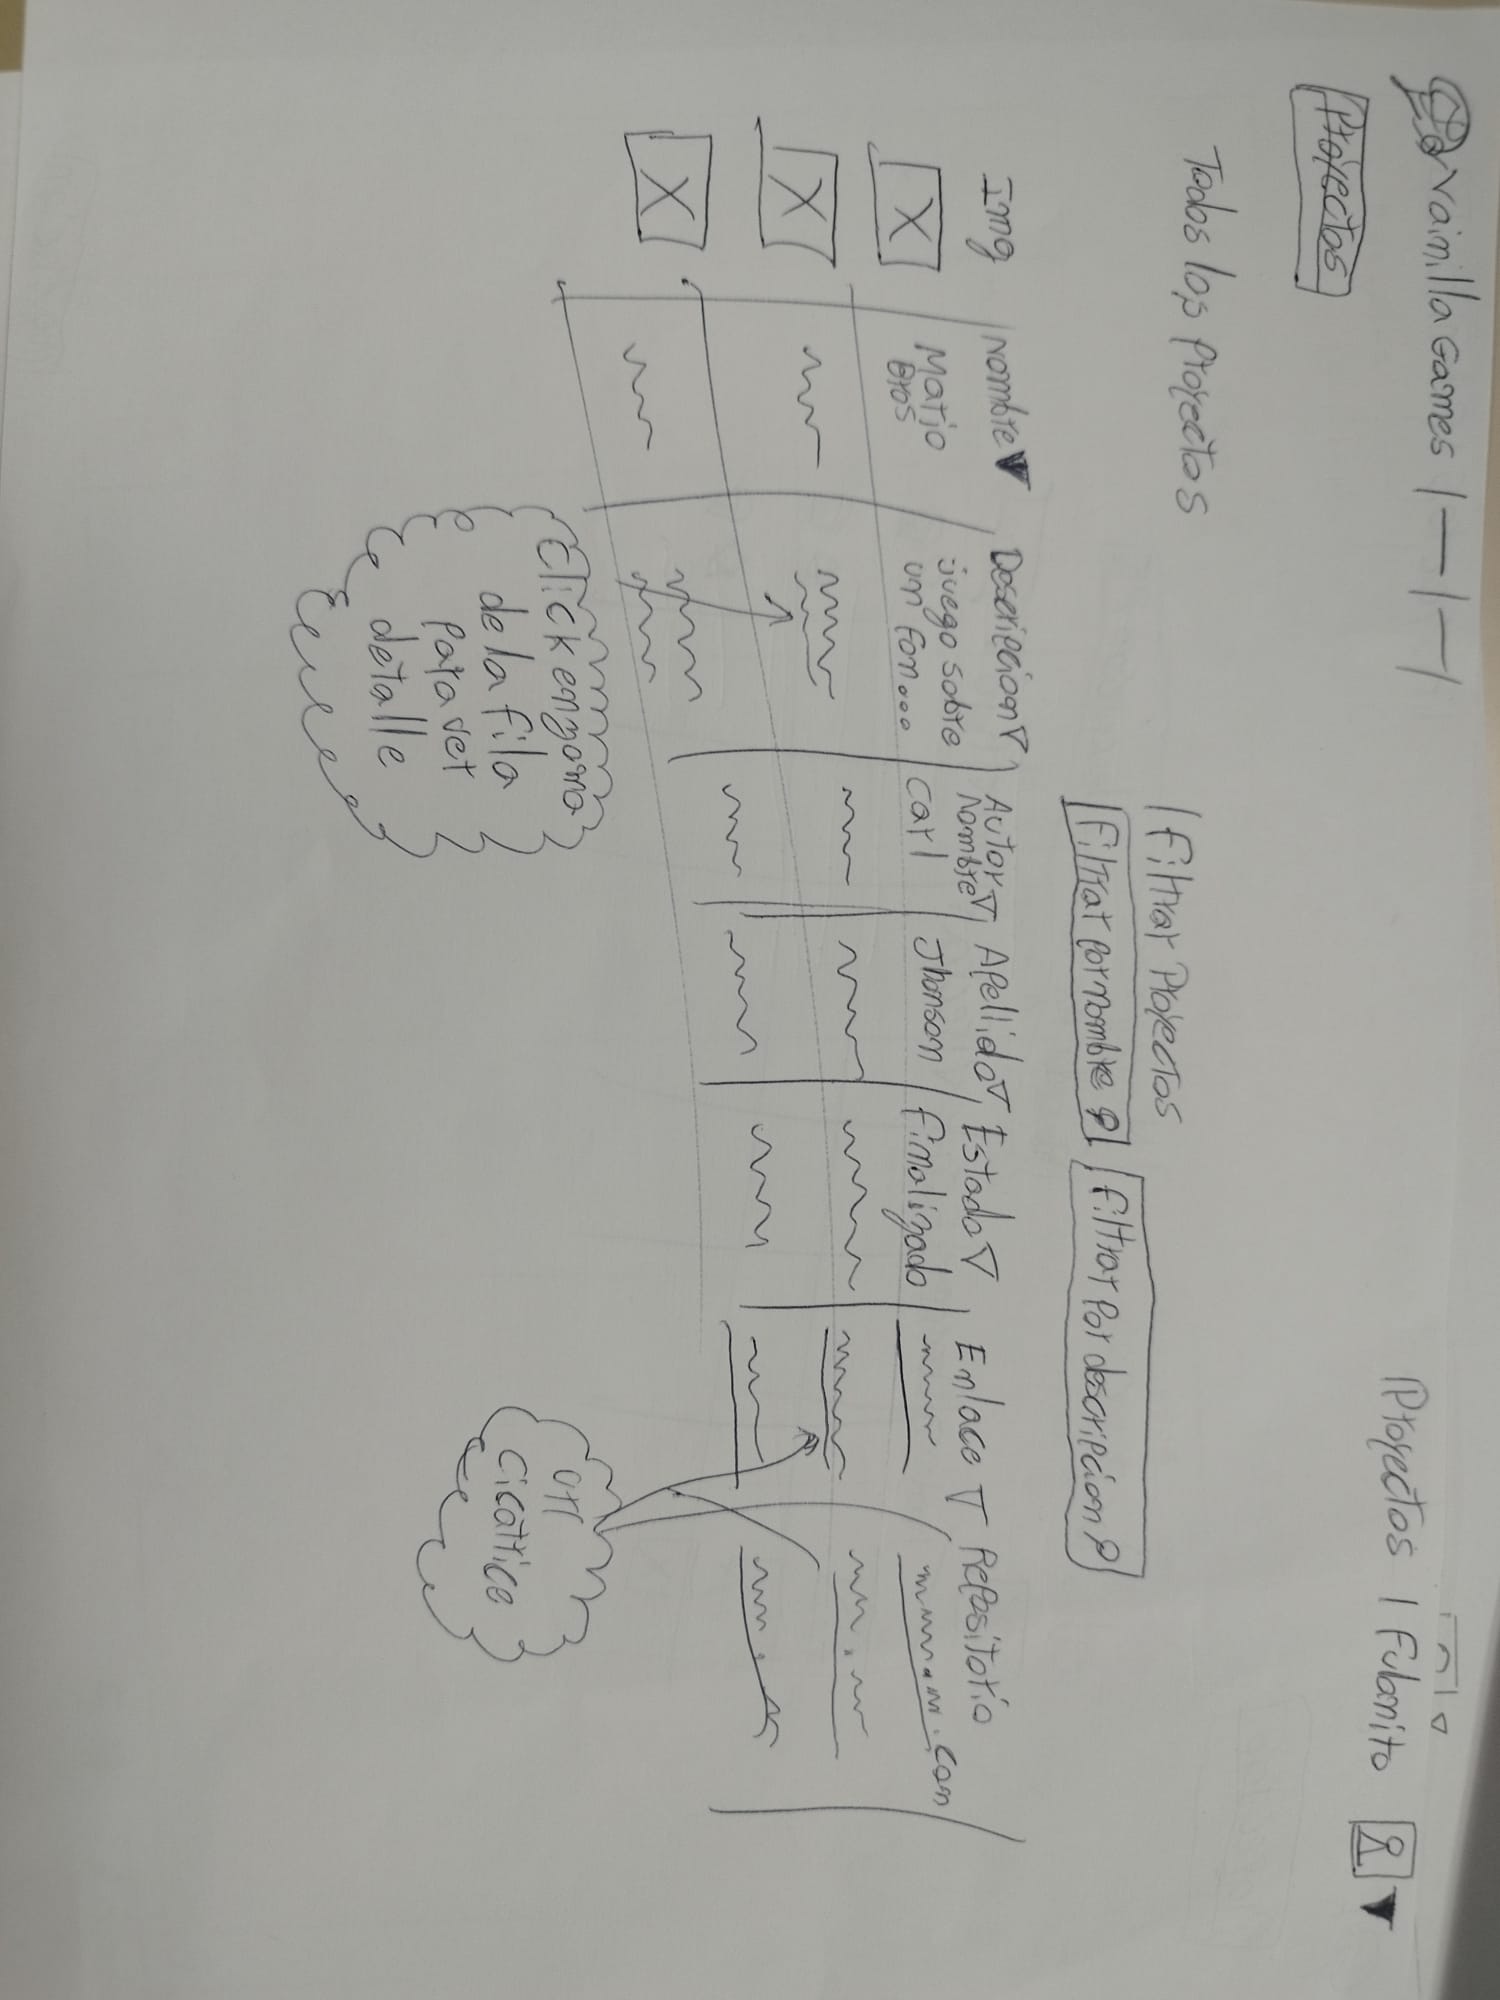 Vainilla Games
Proyectos | Fulanito
Proyectos
Todos los proyectos
Filtrar Proyectos
Filtrar por nombre
filtrar por descripcion
Img Nombre Descripcion Autor Nombre Apellido Estado Enlace Repositorio
Mario Bros
juego sobre
un fon...
Carl Jhonson finalizado .com
Click en zona
de la fila
para ver
detalle
url